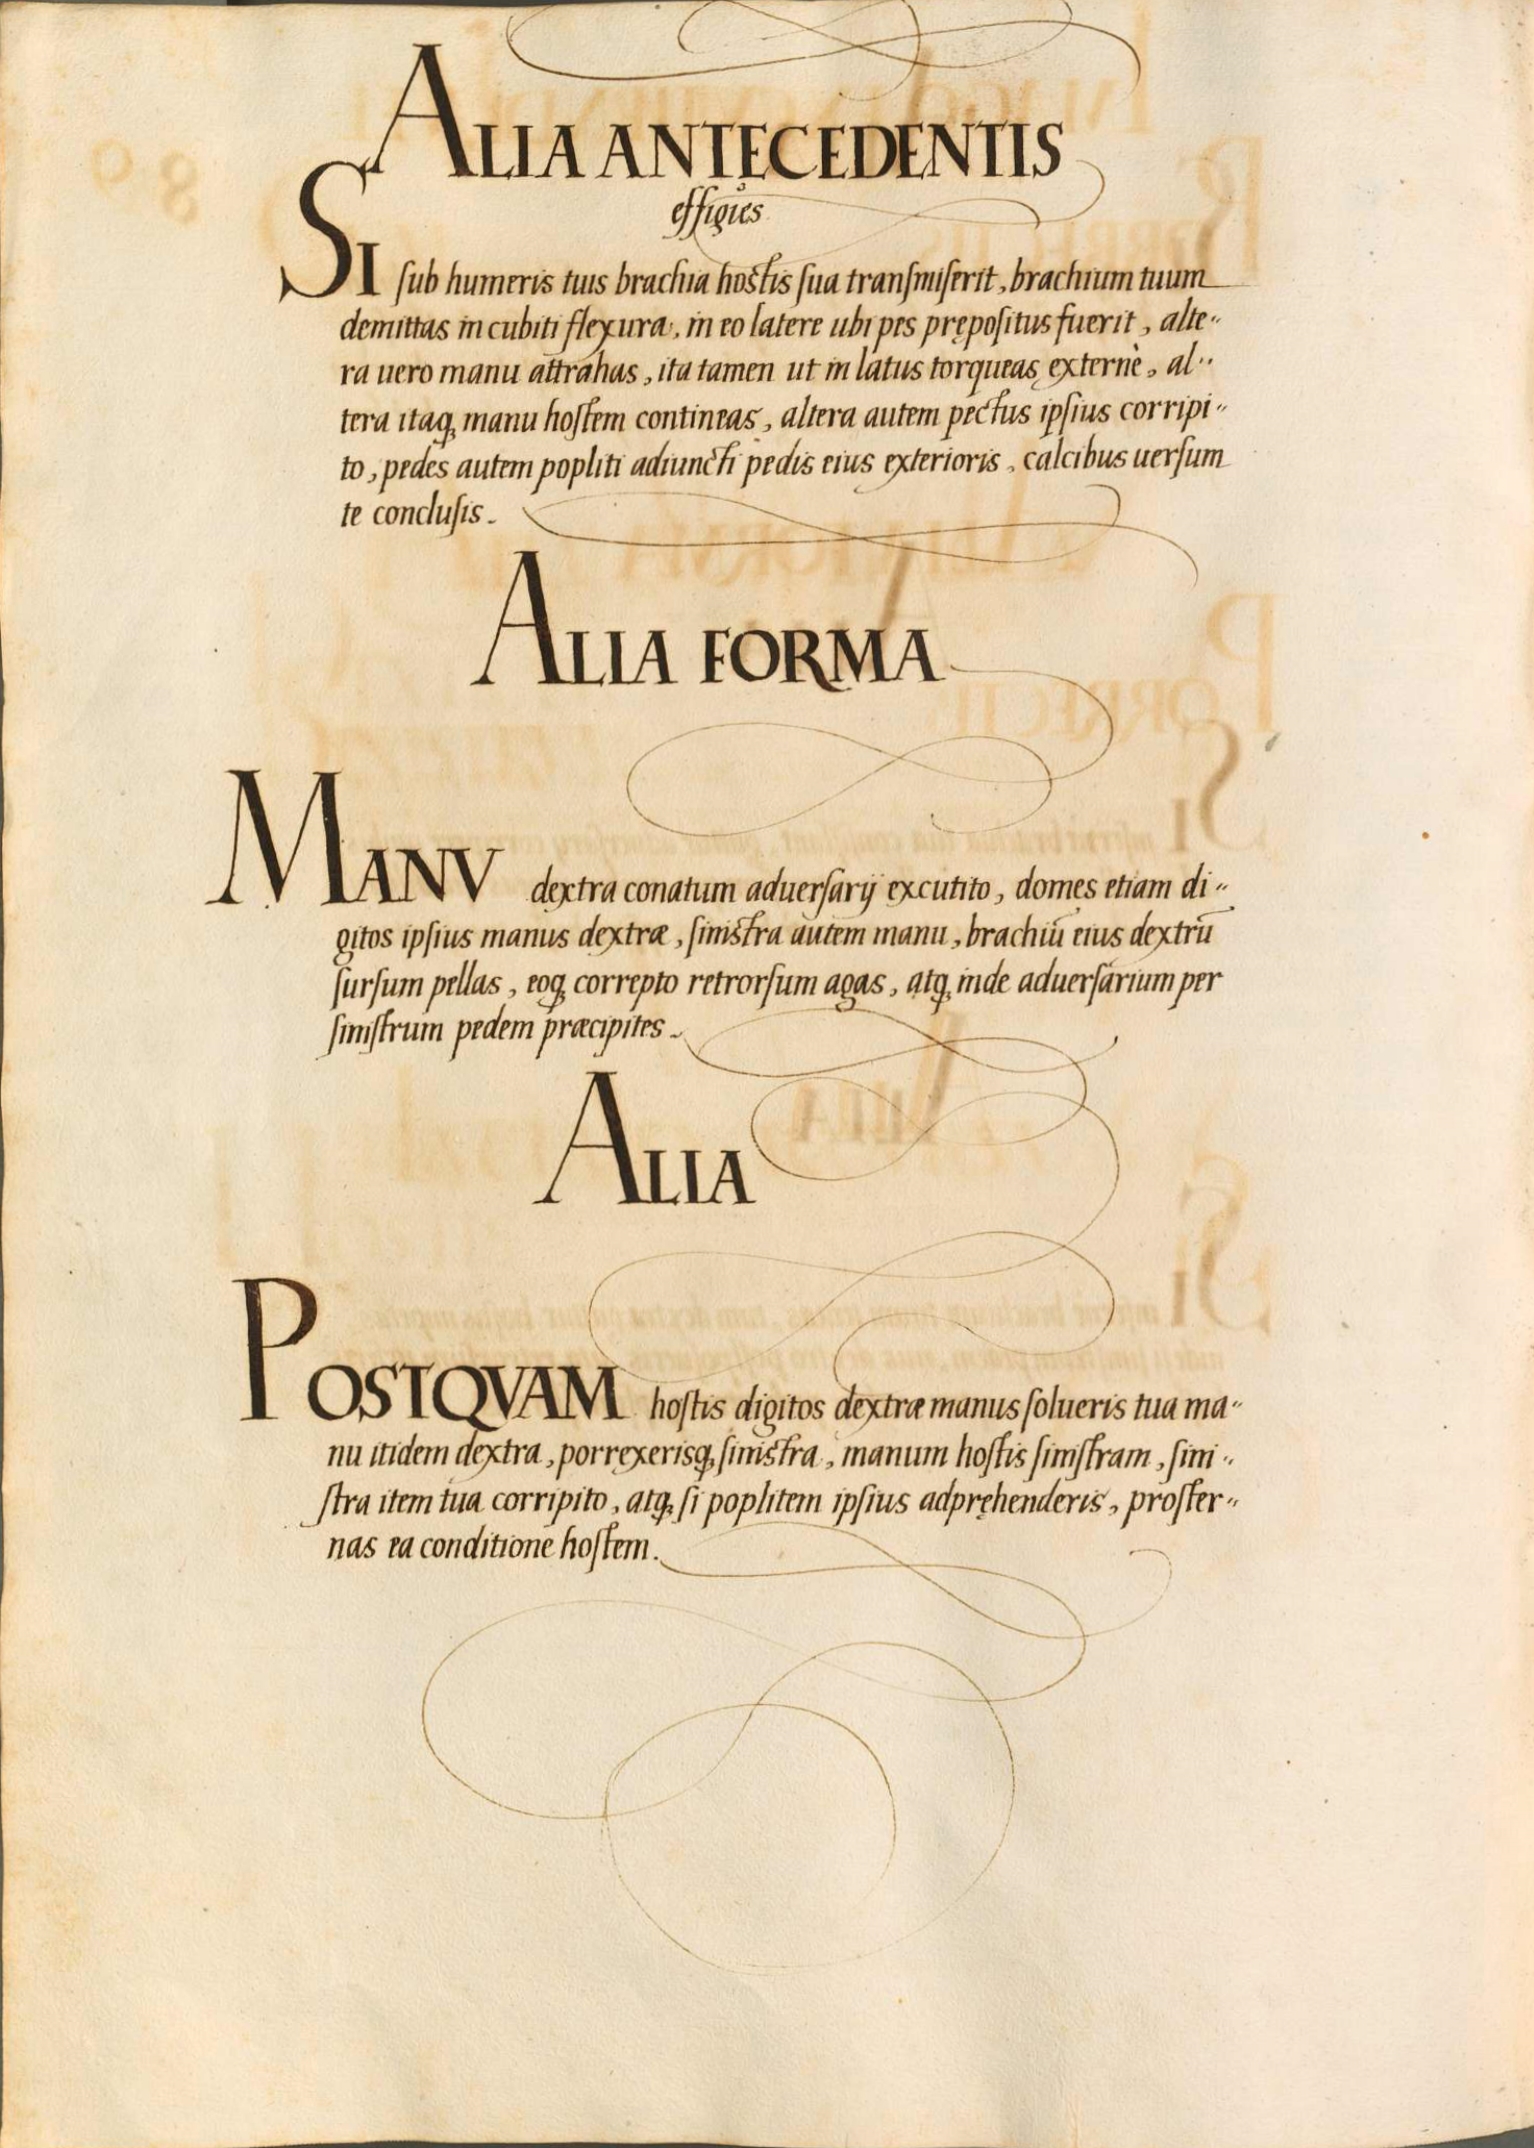 ALIA ANTECEDENTIS
effigies
SI sub humeris tuis brachia hostis sua transmiserit, brachium tuum
demittas in cubiti flexura, in eo latere ubi pes prępositus fuerit, alte〃
ra uero manu attrahas, ita tamen ut in latus torqueas externè, al〃
tera itaq, manu hostem contineas, altera autem pectus ipsius corripi〃
to, pedes autem popliti adiuncti pedis eius exterioris, calcibus uersum
te conclusis.
ALIA FORMA
MANV dextra conatum aduersarij excutito, domes etiam di〃
gitos ipsius manus dextræ, sinistra autem manu, brachiū eius dextrū
sursum pellas, eoq, correpto retrorsum agas, atq, inde aduersarium per
sinistrum pedem præcipites.
ALIA
POSTQVAM hostis digitos dextræ manus solueris tua ma〃
nu itidem dextra, porrexerisq, sinistra, manum hostis sinistram, sini〃
stra item tua corripito, atq, si poplitem ipsius adpręhenderis, proster〃
nas ea conditione hostem.